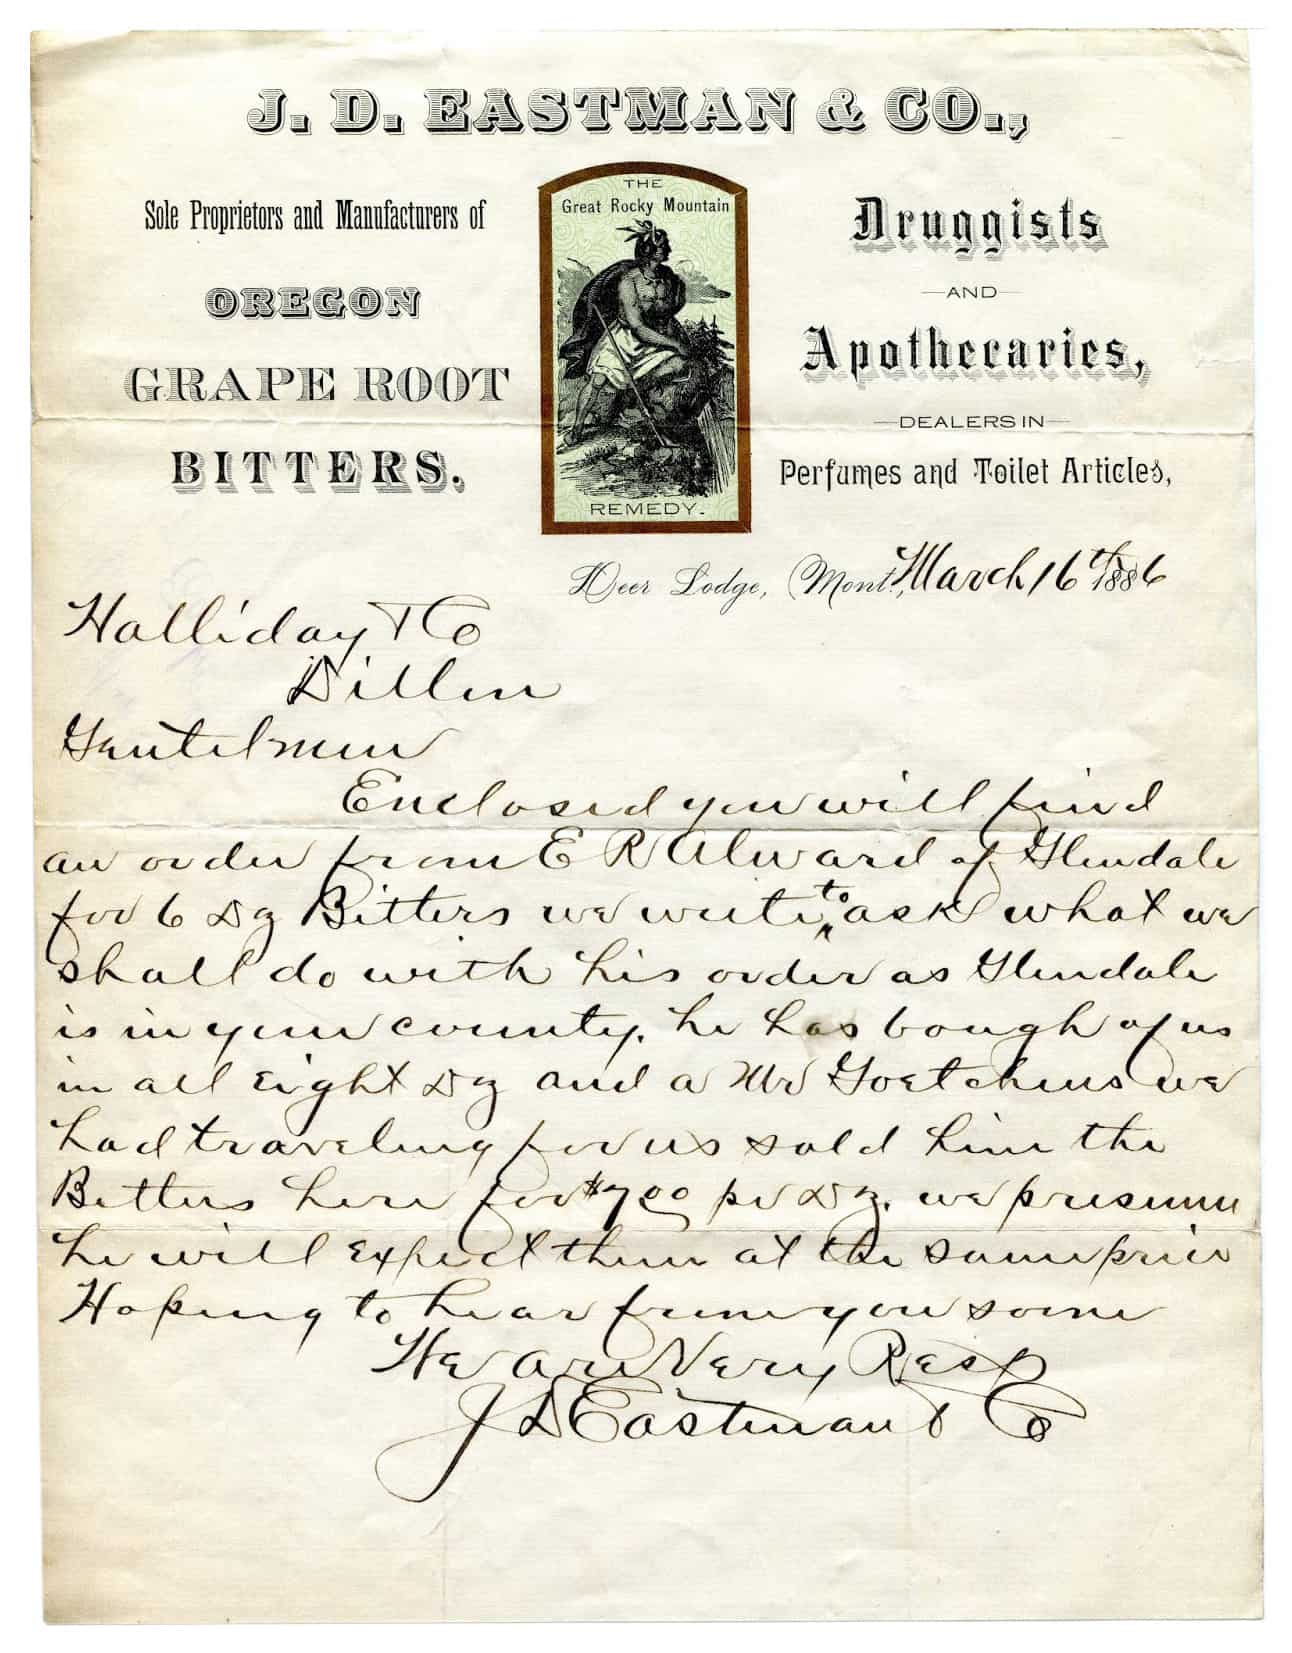 J. D. EASTMAN & CO.,
Sole Proprietors and Manufacturers of
OREGON
GRAPE ROOT
BITTERS.
THE
Great Rocky Mountain
REMEDY.
Druggists
AND
Apothecaries,
DEALERS IN
Perfumes and Toilet Articles,
Deer Lodge, Mont., March 16th 1886
Halliday & Co
Dillon
Gentelmen
Enclosed you will find
an order from E R Alward of Glendale
for 6 Dz Bitters we write to ask what we
shall do with his order as Glendale
is in your county. he has bough of us
in all Eight Dz and a Mr Goetchius we
had traveling for us sold him the
Bitters here for $700 pr Dz. we presume
he will Expect them at the same price
Hoping to hear from you soon
We are Very Resp
J D Eastman & Co